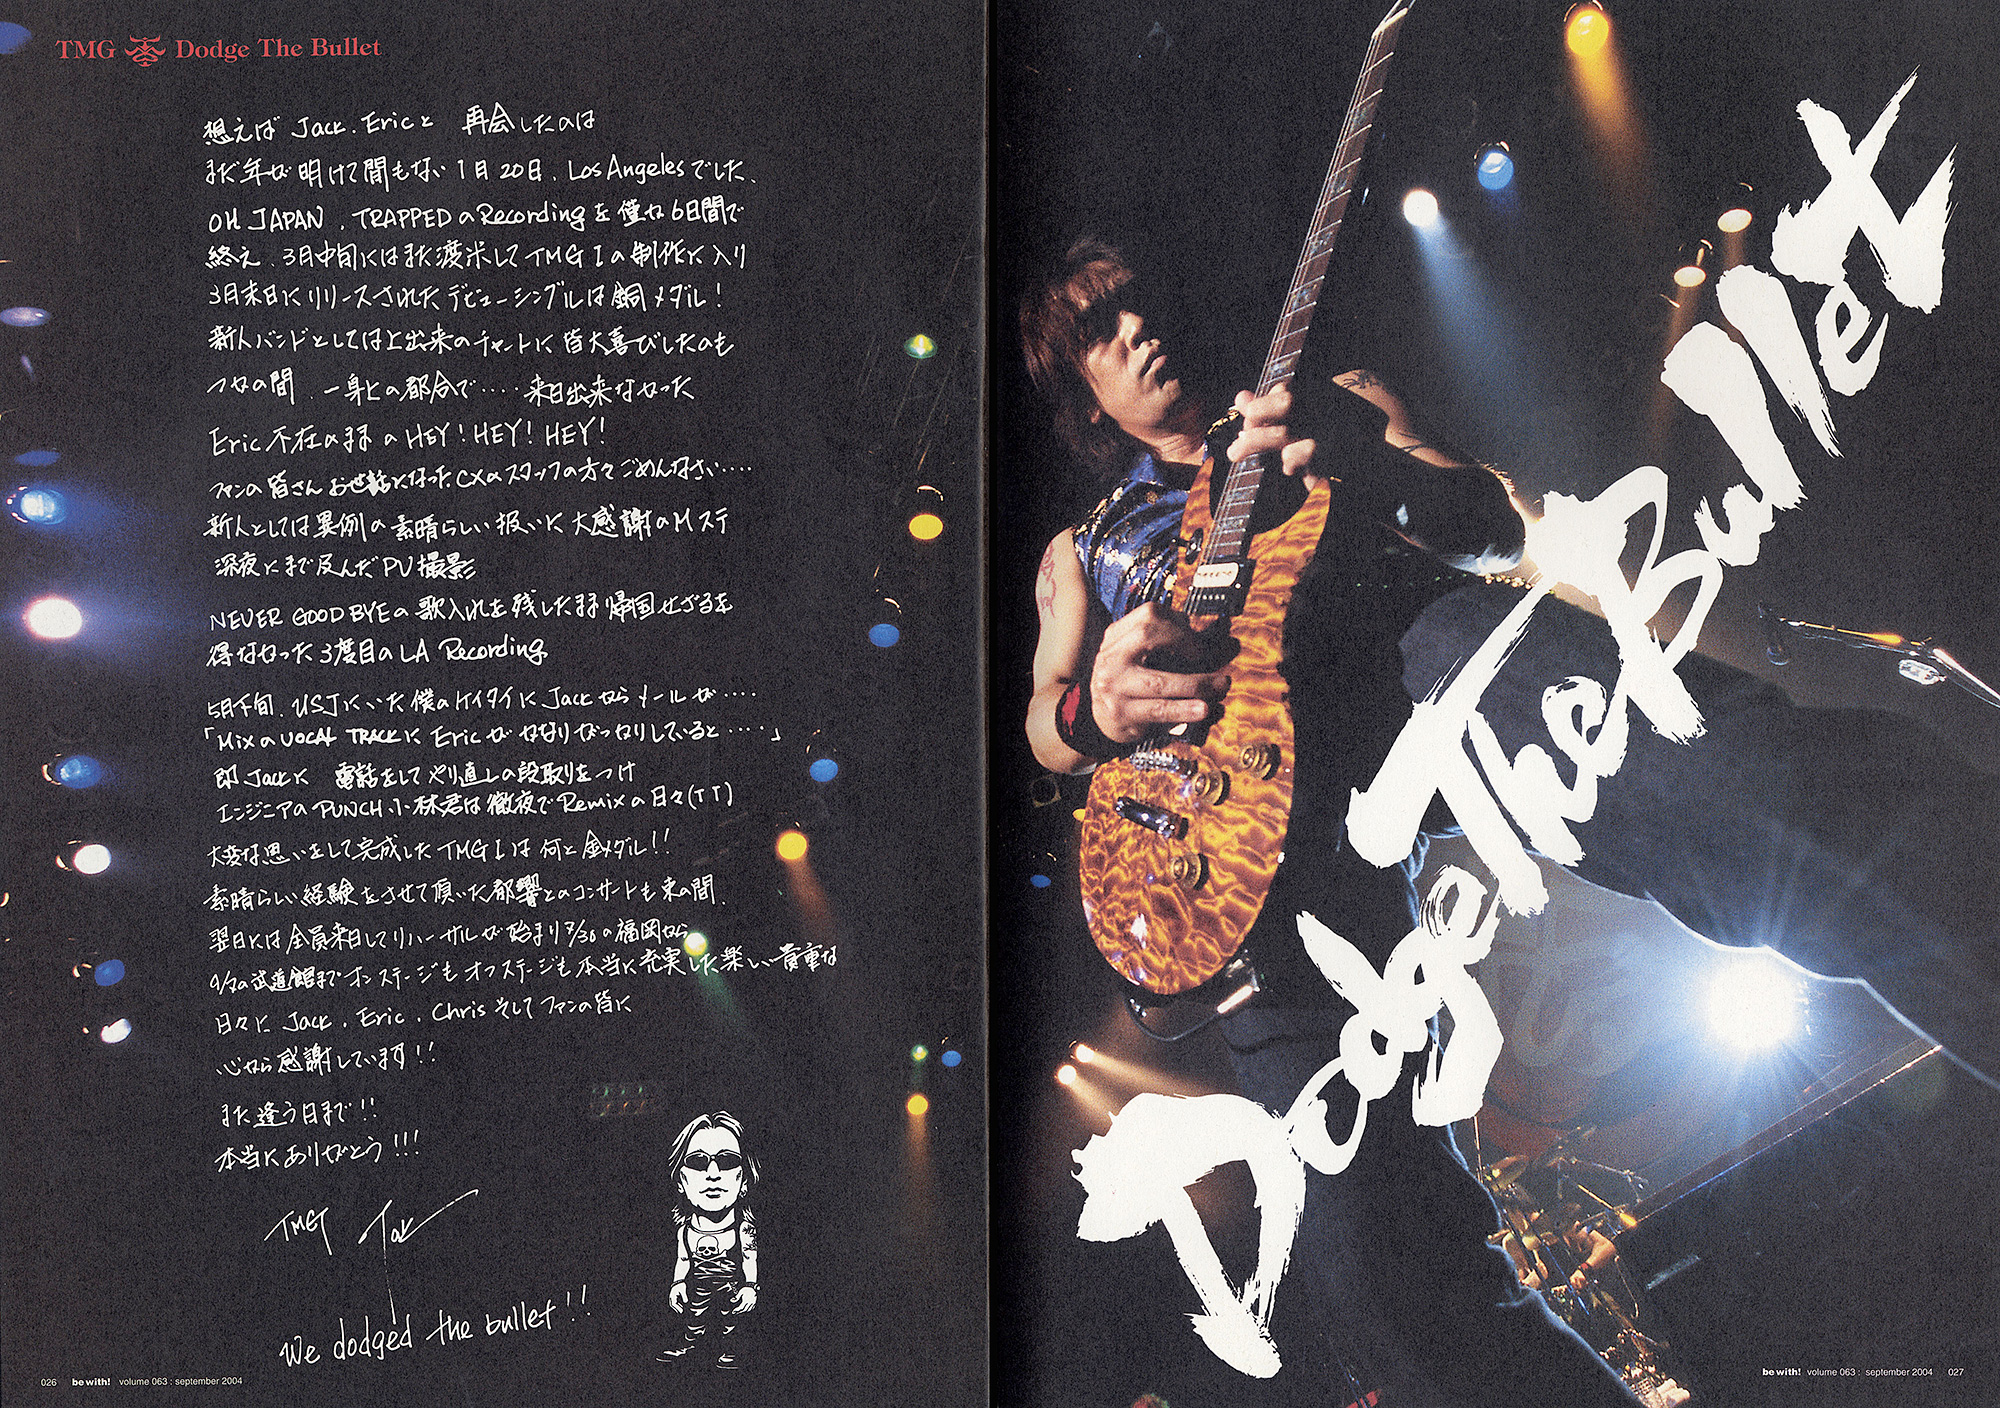 TMG Dodge The Bullet
想えば Jack, Ericと 再会したのは
まだ年が明けて間もない1月20日、Los Angelesでした、
OH JAPAN, TRAPPEDのRecordingを僅か6日間で
終え、3月中旬にはまた渡米してTMG Iの制作に入り
3月末日にリリースされたデビューシングルは銅メダル!
新人バンドとしては上出来のチャートに皆大喜びしたのも
つかの間、一身上の都合で‥‥来日出来なかった
Eric不在のままのHEY! HEY! HEY!
ファンの皆さんお世話になったCXのスタッフの方々ごめんなさい‥‥
新人としては異例の素晴らしい扱いに大感謝のMステ
深夜にまで及んだPV撮影
NEVER GOOD BYEの歌入れを残したまま帰国せざるを
得なかった3度目のLA Recording。
5月下旬、USJにいた僕のケイタイにJackからメールが‥‥
「MixのVOCAL TRACKにEricがかなりがっかりしていると‥‥」
即Jackに 電話をしてやり直しの段取りをつけ
エンジニアのPUNCH、小林君は徹夜でRemixの日々(TT)
大変な思いをして完成したTMG Iは何と金メダル!!
素晴らしい経験をさせて頂いた都響とのコンサートも束の間、
翌日には全員来日してリハーサルが始まり7/30の福岡から
9/7の武道館までオンステージもオフステージも本当に充実した楽しい貴重な
日々に Jack, Eric, Chrisそしてファンの皆に
心から感謝しています!!
また逢う日まで!!
本当にありがとう!!!
TMG Tak
We dodged the bullet!!
026 be with! volume 063 : september 2004
Dodge The Bullet
be with! volume 063 : september 2004 027